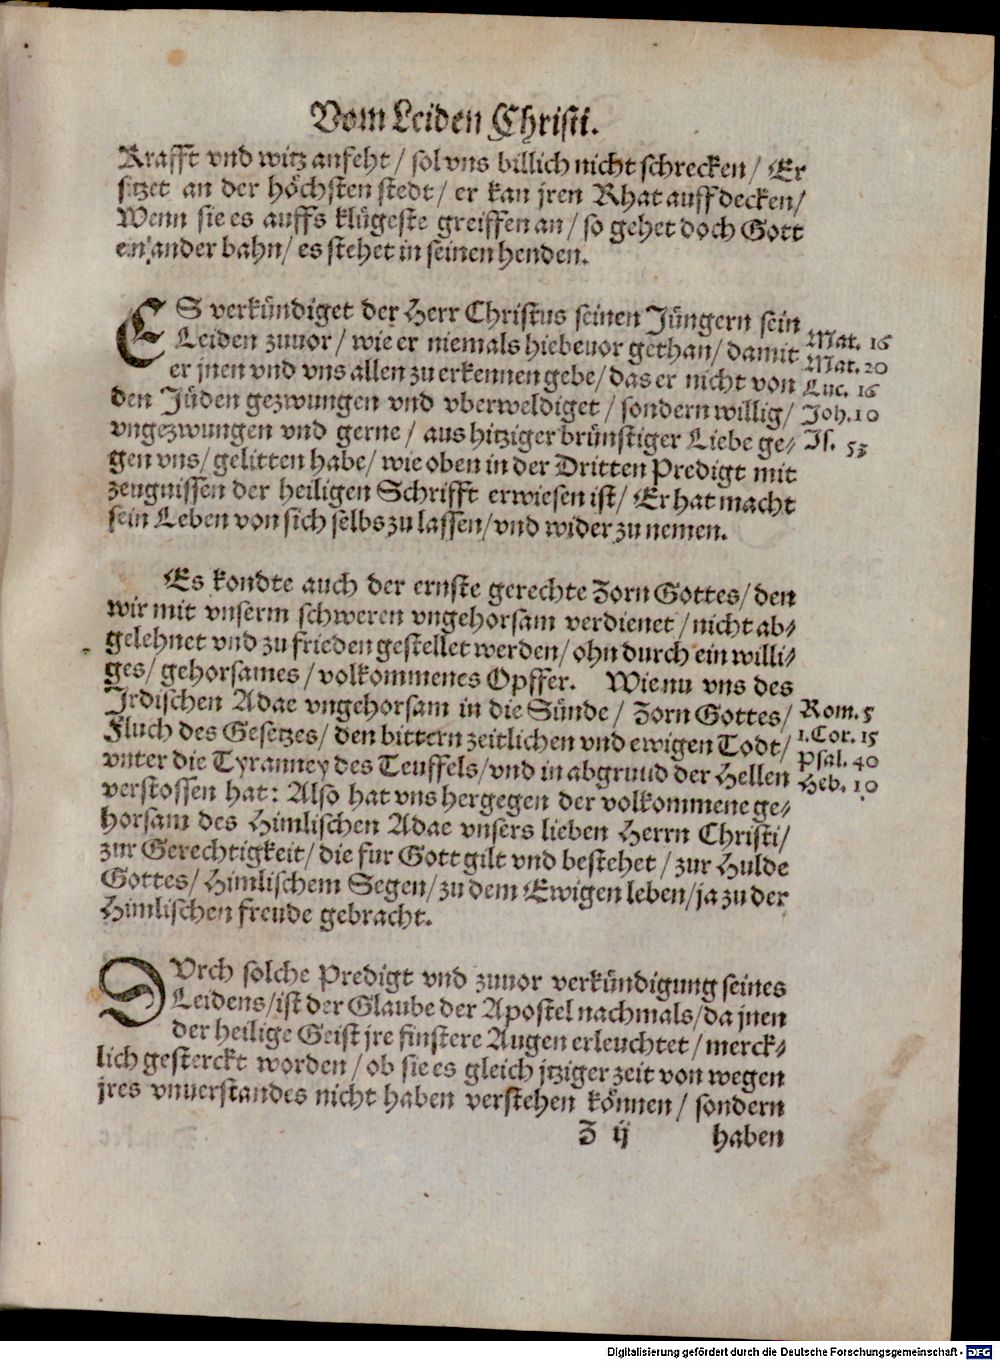 Vom Leiden Christi.
Krafft vnd witz anfeht / sol vns billich nicht schrecken / Er
sitzet an der höchsten stedt / er kan jren Rhat auffdecken /
Wenn sie es auffs klügeste greiffen an / so gehet doch Gott
ein ander bahn / es stehet in seinen henden.
ES verkündiget der Herr Christus seinen Jüngern sein
Leiden zuuor / wie er niemals hiebeuor gethan / damit
er jnen vnd vns allen zu erkennen gebe / das er nicht von
den Jüden gezwungen vnd vberweldiget / sondern willig /
vngezwungen vnd gerne / aus hitziger brünstiger Liebe ge⸗
gen vns / gelitten habe / wie oben in der Dritten Predigt mit
zeugnissen der heiligen Schrifft erwiesen ist / Er hat macht
sein Leben von sich selbs zu lassen / vnd wider zu nemen.
Mat. 16
Mat. 20
Luc. 16
Joh. 10
Is. 53
Es kondte auch der ernste gerechte Zorn Gottes / den
wir mit vnserm schweren vngehorsam verdienet / nicht ab⸗
gelehnet vnd zu frieden gestellet werden / ohn durch ein willi⸗
ges / gehorsames / volkommenes Opffer. Wie nu vns des
Jrdischen Adae vngehorsam in die Sünde / Zorn Gottes /
Fluch des Gesetzes / den bittern zeitlichen vnd ewigen Todt /
vnter die Tyranney des Teuffels / vnd in abgrund der Hellen
verstossen hat: Also hat vns hergegen der volkommene ge⸗
horsam des Himlischen Adae vnsers lieben Herrn Christi /
zur Gerechtigkeit / die fur Gott gilt vnd bestehet / zur Hulde
Gottes / Himlischem Segen / zu dem Ewigen leben / ja zu der
Himlischen freude gebracht.
Rom. 5
1. Cor. 15
Psal. 40
Heb. 10
DVrch solche Predigt vnd zuuor verkündigung seines
Leidens / ist der Glaube der Apostel nachmals / da jnen
der heilige Geist jre finstere Augen erleuchtet / merck⸗
lich gesterckt worden / ob sie es gleich jtziger zeit von wegen
jres vnuerstandes nicht haben verstehen können / sondern
Z ij haben
Digitalisierung gefördert durch die Deutsche Forschungsgemeinschaft - DFG